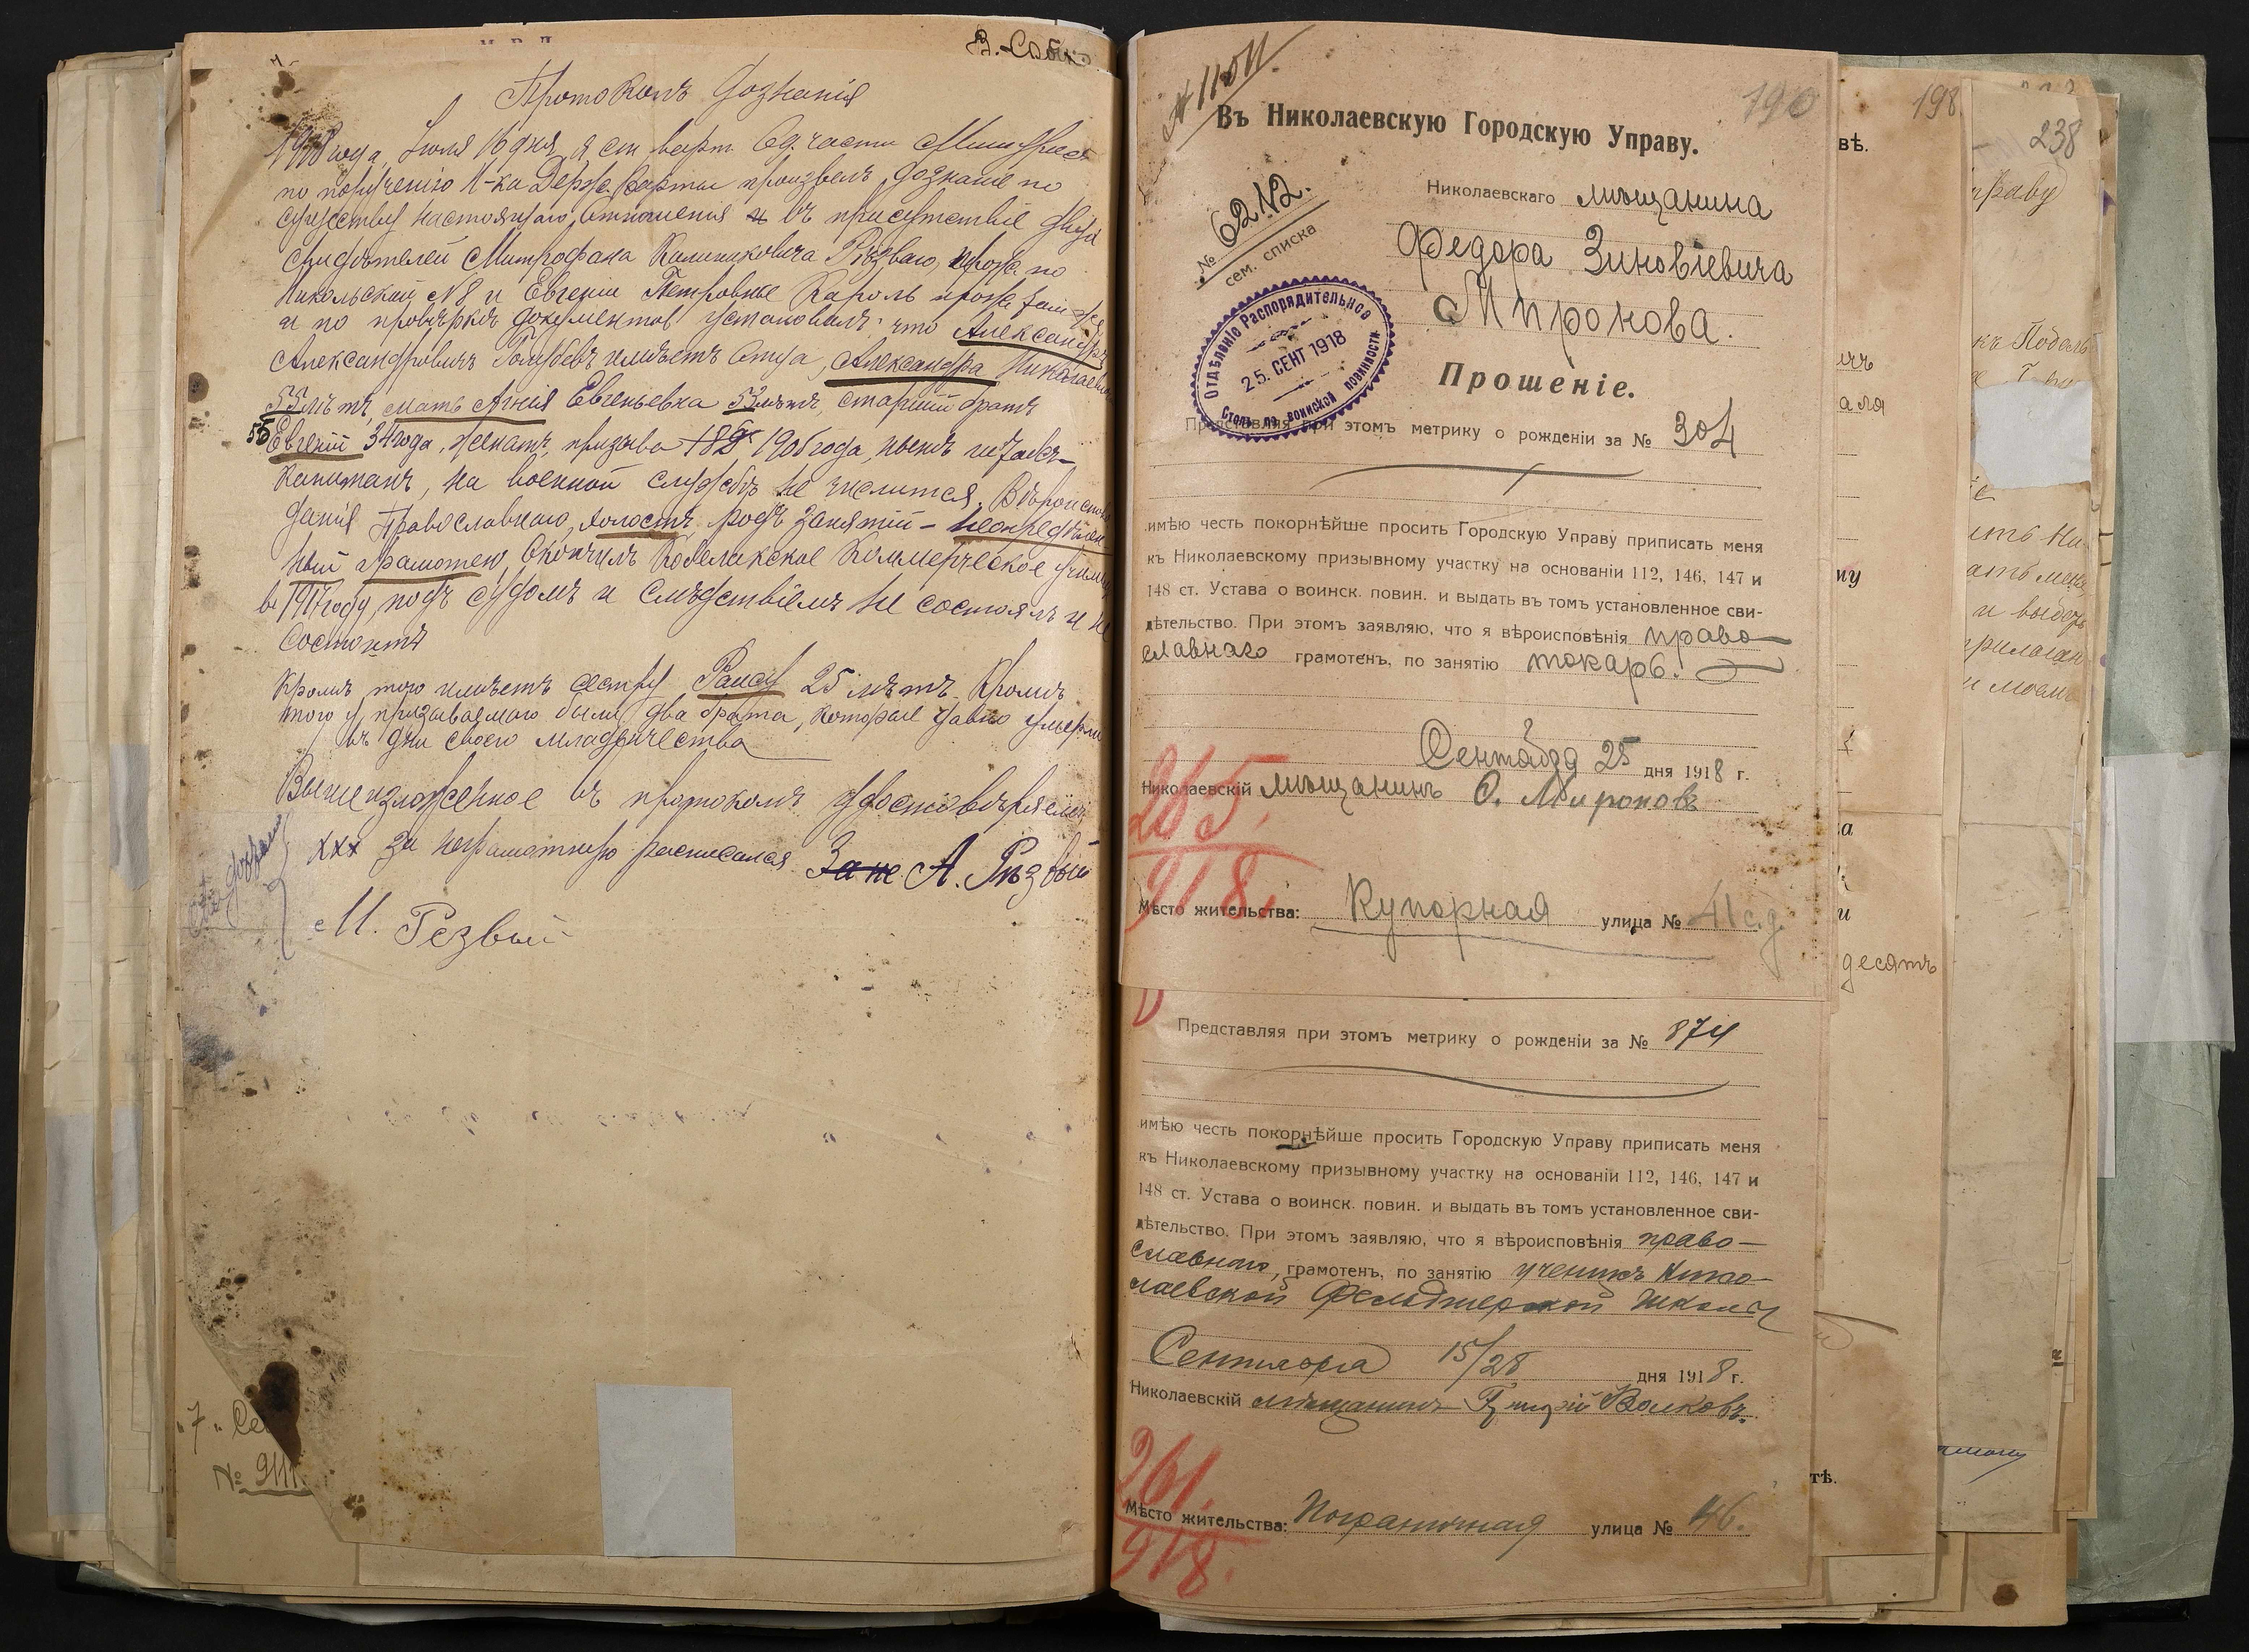 В. Собст
Протоколъ дознанія
1918 года Іюля 16 дня, я ст. варт. Од. части
по порученію Н-ка Держ. Варты произвелъ дознаніе по
существу настоящаго отношенія въ присутствіе двухъ
свидѣтелей Митрофана Калиниковича Рѣзваго, прож. по
Никольской №8 и Евгеніи Петровны Кароль прож. тамъ же
и по провѣркѣ документовъ установилъ что Александръ
Александровичъ Голубевъ имѣетъ Отца, Александра Николаевича
55 лѣтъ, мать Агнія Евгеньевна 53 лѣтъ, старшій братъ
55
Евгеній 34 года, женатъ, призыва 1905 года, нынѣ штабсъ-
Капитанъ, на военной службѣ не числится. Вѣроисповѣ
данія Православнаго, холостъ родъ занятій - неопредѣлен
ный грамотенъ, окончилъ Кобелякское Коммерческое Училище
въ 1917 году, подъ судомъ и слѣдствіемъ не состоялъ и не
состоитъ
Кромѣ того имѣетъ сестру Раису 25 лѣтъ. Кромѣ
того у призываемаго были два брата, которые давно умерли
въ дни своего младенчества
Вышеизложенное въ протоколѣ удостовѣряемъ
ххх за неграмотную расписался За не А. Рѣзвый
М. Резвый
"7" Се
№ 9111
№ 11511
190
Въ Николаевскую Городскую Управу.
№ 6212.
сем. списка
Николаевскаго мѣщанина
Федора Зиновіевича
Миронова.
Отдѣленіе Распорядительное
25. СЕНТ 1918
Столъ по воинской повинности
Прошеніе.
Представляя при этомъ метрику о рожденіи за № 304
имѣю честь покорнѣйше просить Городскую Управу приписать меня
къ Николаевскому призывному участку на основаніи 112, 146, 147 и
148 ст. Устава о воинск. повин. и выдать въ томъ установленное сви-
дѣтельство. При этомъ заявляю, что я вѣроисповѣнія право-
славнаго грамотенъ, по занятію токарь.
Сентября 25 дня 1918 г.
Николаевскій мѣщанинъ Ѳ. Мироновъ
265.
918.
Мѣсто жительства: Купорная улица № 41 с.д.
Представляя при этомъ метрику о рожденіи за № 874
имѣю честь покорнѣйше просить Городскую Управу приписать меня
къ Николаевскому призывному участку на основаніи 112, 146, 147 и
148 ст. Устава о воинск. повин. и выдать въ томъ установленное сви-
дѣтельство. При этомъ заявляю, что я вѣроисповѣнія право-
славнаго, грамотенъ, по занятію ученикъ Нико-
лаевской Фельдшерской школы
Сентября 15/28 дня 1918 г.
Николаевскій мѣщанинъ Волковъ.
261.
918.
Мѣсто жительства: Пограничная улица № 46.
198
вѣ.
ala
му
десять
тѣ.
238
праву
ить Ни
ать меня
и выдать